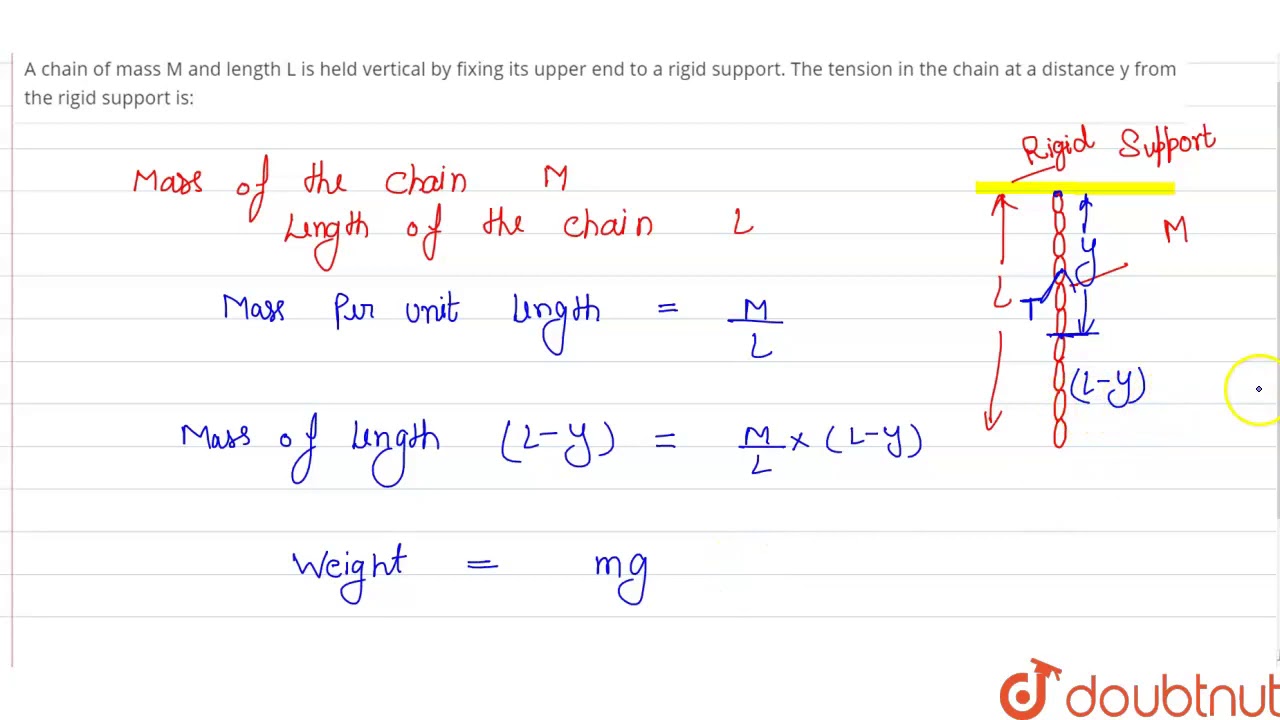 A chain of mass M and length L is held vertical by fixing its upper end to a rigid support. The tension in the chain at a distance y from
the rigid support is:
Rigid Support
Mass of the chain M
Length of the chain L
M
y
L
T
Mass Per unit length = M/L
(L-y)
Mass of length (L-y) = M/L × (L-y)
Weight = mg
doubtnut